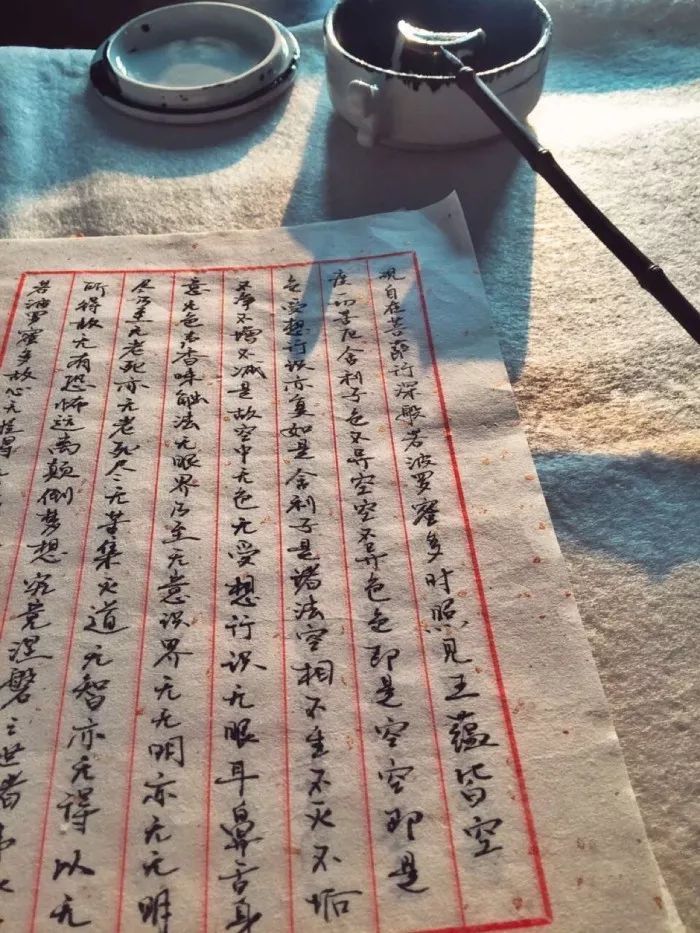 观自在菩萨行深般若波罗蜜多时照见五蕴皆空
度一切苦厄舍利子色不异空空不异色色即是空空即是
色受想行识亦复如是舍利子是诸法空相不生不灭不垢
不净不增不减是故空中无色无受想行识无眼耳鼻舌身
意无色声香味触法无眼界乃至无意识界无无明亦无无明
尽乃至无老死亦无老死尽无苦集灭道无智亦无得以无
所得故无有恐怖远离颠倒梦想究竟涅槃三世诸
若波罗蜜多故心无挂碍